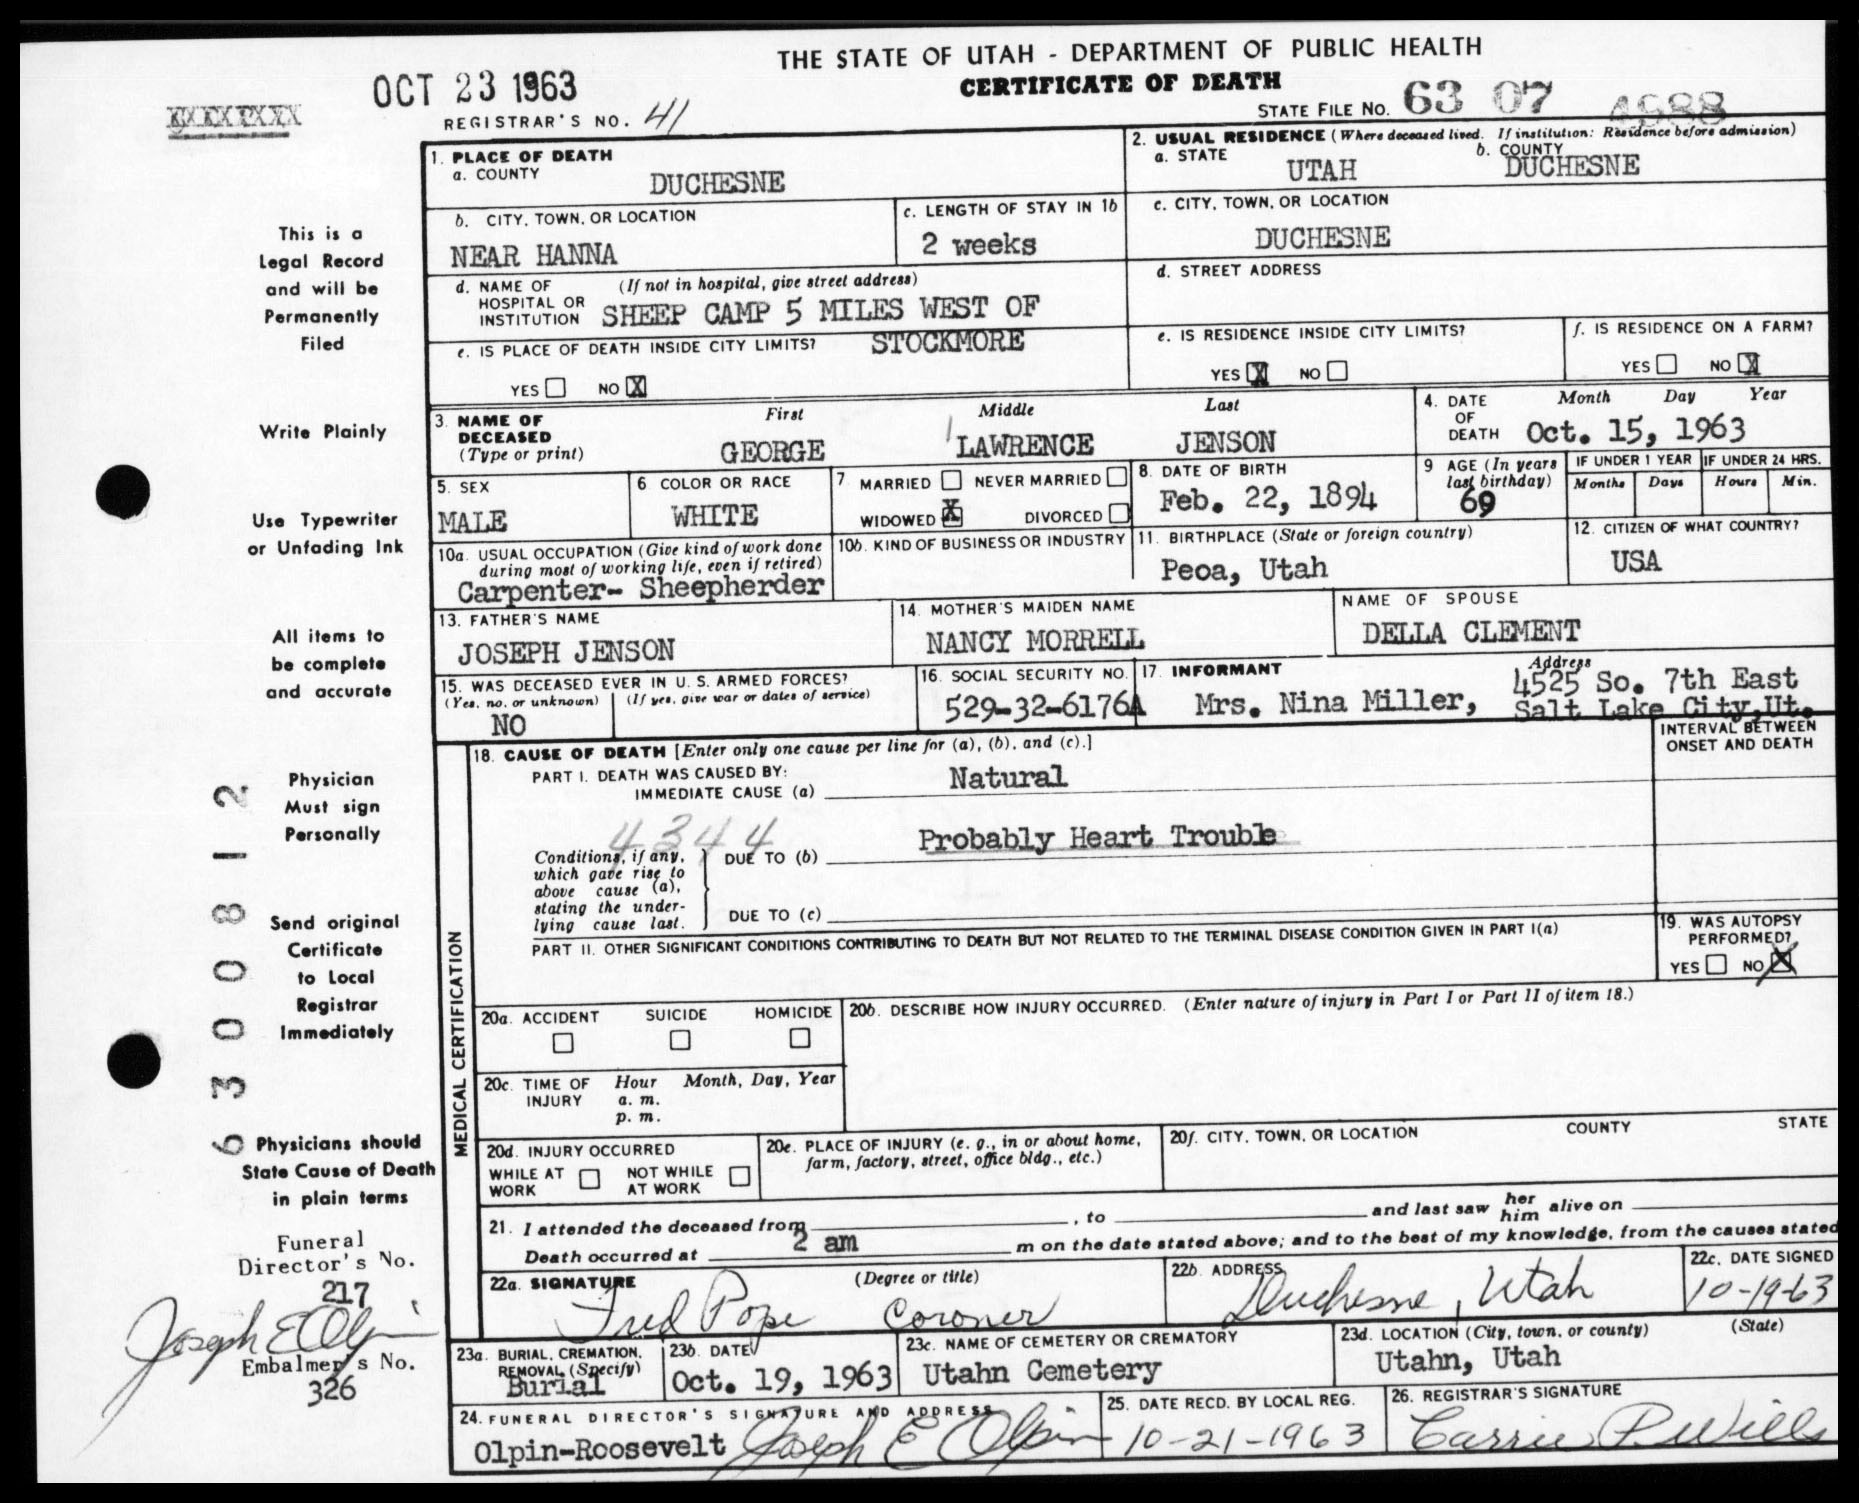 THE STATE OF UTAH - DEPARTMENT OF PUBLIC HEALTH
CERTIFICATE OF DEATH
OCT 23 1963
REGISTRAR'S NO. 41
STATE FILE NO. 63 07 4688
1. PLACE OF DEATH
a. COUNTY
DUCHESNE
2. USUAL RESIDENCE (Where deceased lived. If institution: Residence before admission)
a. STATE
UTAH
b. COUNTY
DUCHESNE
b. CITY, TOWN, OR LOCATION
NEAR HANNA
c. LENGTH OF STAY IN 1b
2 weeks
c. CITY, TOWN, OR LOCATION
DUCHESNE
d. NAME OF HOSPITAL OR INSTITUTION
(If not in hospital, give street address)
SHEEP CAMP 5 MILES WEST OF
STOCKMORE
d. STREET ADDRESS
e. IS PLACE OF DEATH INSIDE CITY LIMITS?
YES NO X
e. IS RESIDENCE INSIDE CITY LIMITS?
YES X NO
f. IS RESIDENCE ON A FARM?
YES NO X
3. NAME OF DECEASED
(Type or print)
First Middle Last
GEORGE LAWRENCE JENSON
4. DATE OF DEATH
Month Day Year
Oct. 15, 1963
5. SEX
MALE
6 COLOR OR RACE
WHITE
7. MARRIED NEVER MARRIED
WIDOWED X DIVORCED
8. DATE OF BIRTH
Feb. 22, 1894
9 AGE (In years last birthday)
69
IF UNDER 1 YEAR
Months Days
IF UNDER 24 HRS.
Hours Min.
10a. USUAL OCCUPATION (Give kind of work done during most of working life, even if retired)
Carpenter- Sheepherder
10b. KIND OF BUSINESS OR INDUSTRY
11. BIRTHPLACE (State or foreign country)
Peoa, Utah
12. CITIZEN OF WHAT COUNTRY?
USA
13. FATHER'S NAME
JOSEPH JENSON
14. MOTHER'S MAIDEN NAME
NANCY MORRELL
NAME OF SPOUSE
DELLA CLEMENT
15. WAS DECEASED EVER IN U. S. ARMED FORCES?
(Yes, no, or unknown) (If yes, give war or dates of service)
NO
16. SOCIAL SECURITY NO.
529-32-6176A
17. INFORMANT Address
Mrs. Nina Miller, 4525 So. 7th East
Salt Lake City, Ut.
MEDICAL CERTIFICATION
18. CAUSE OF DEATH [Enter only one cause per line for (a), (b), and (c).]
INTERVAL BETWEEN ONSET AND DEATH
PART I. DEATH WAS CAUSED BY:
IMMEDIATE CAUSE (a) Natural
4344
Conditions, if any, which gave rise to above cause (a), stating the underlying cause last.
DUE TO (b) Probably Heart Trouble
DUE TO (c)
PART II. OTHER SIGNIFICANT CONDITIONS CONTRIBUTING TO DEATH BUT NOT RELATED TO THE TERMINAL DISEASE CONDITION GIVEN IN PART I(a)
19. WAS AUTOPSY PERFORMED?
YES NO X
20a. ACCIDENT SUICIDE HOMICIDE
20b. DESCRIBE HOW INJURY OCCURRED. (Enter nature of injury in Part I or Part II of item 18.)
20c. TIME OF INJURY
Hour Month, Day, Year
a. m.
p. m.
20d. INJURY OCCURRED
WHILE AT WORK NOT WHILE AT WORK
20e. PLACE OF INJURY (e. g., in or about home, farm, factory, street, office bldg., etc.)
20f. CITY, TOWN, OR LOCATION COUNTY STATE
21. I attended the deceased from , to and last saw her him alive on
Death occurred at 2 am m on the date stated above; and to the best of my knowledge, from the causes stated
22a. SIGNATURE (Degree or title)
Fred Pope Coroner
22b. ADDRESS
Duchesne, Utah
22c. DATE SIGNED
10-19-63
23a. BURIAL, CREMATION, REMOVAL (Specify)
Burial
23b. DATE
Oct. 19, 1963
23c. NAME OF CEMETERY OR CREMATORY
Utahn Cemetery
23d. LOCATION (City, town, or county) (State)
Utahn, Utah
24. FUNERAL DIRECTOR'S SIGNATURE AND ADDRESS
Olpin-Roosevelt Joseph E Olpin
25. DATE RECD. BY LOCAL REG.
10-21-1963
26. REGISTRAR'S SIGNATURE
Carrie P. Wills
This is a
Legal Record
and will be
Permanently
Filed
Write Plainly
Use Typewriter
or Unfading Ink
All items to
be complete
and accurate
Physician
Must sign
Personally
Send original
Certificate
to Local
Registrar
Immediately
Physicians should
State Cause of Death
in plain terms
6300812
Funeral
Director's No.
217
Joseph E Olpin
Embalmer's No.
326